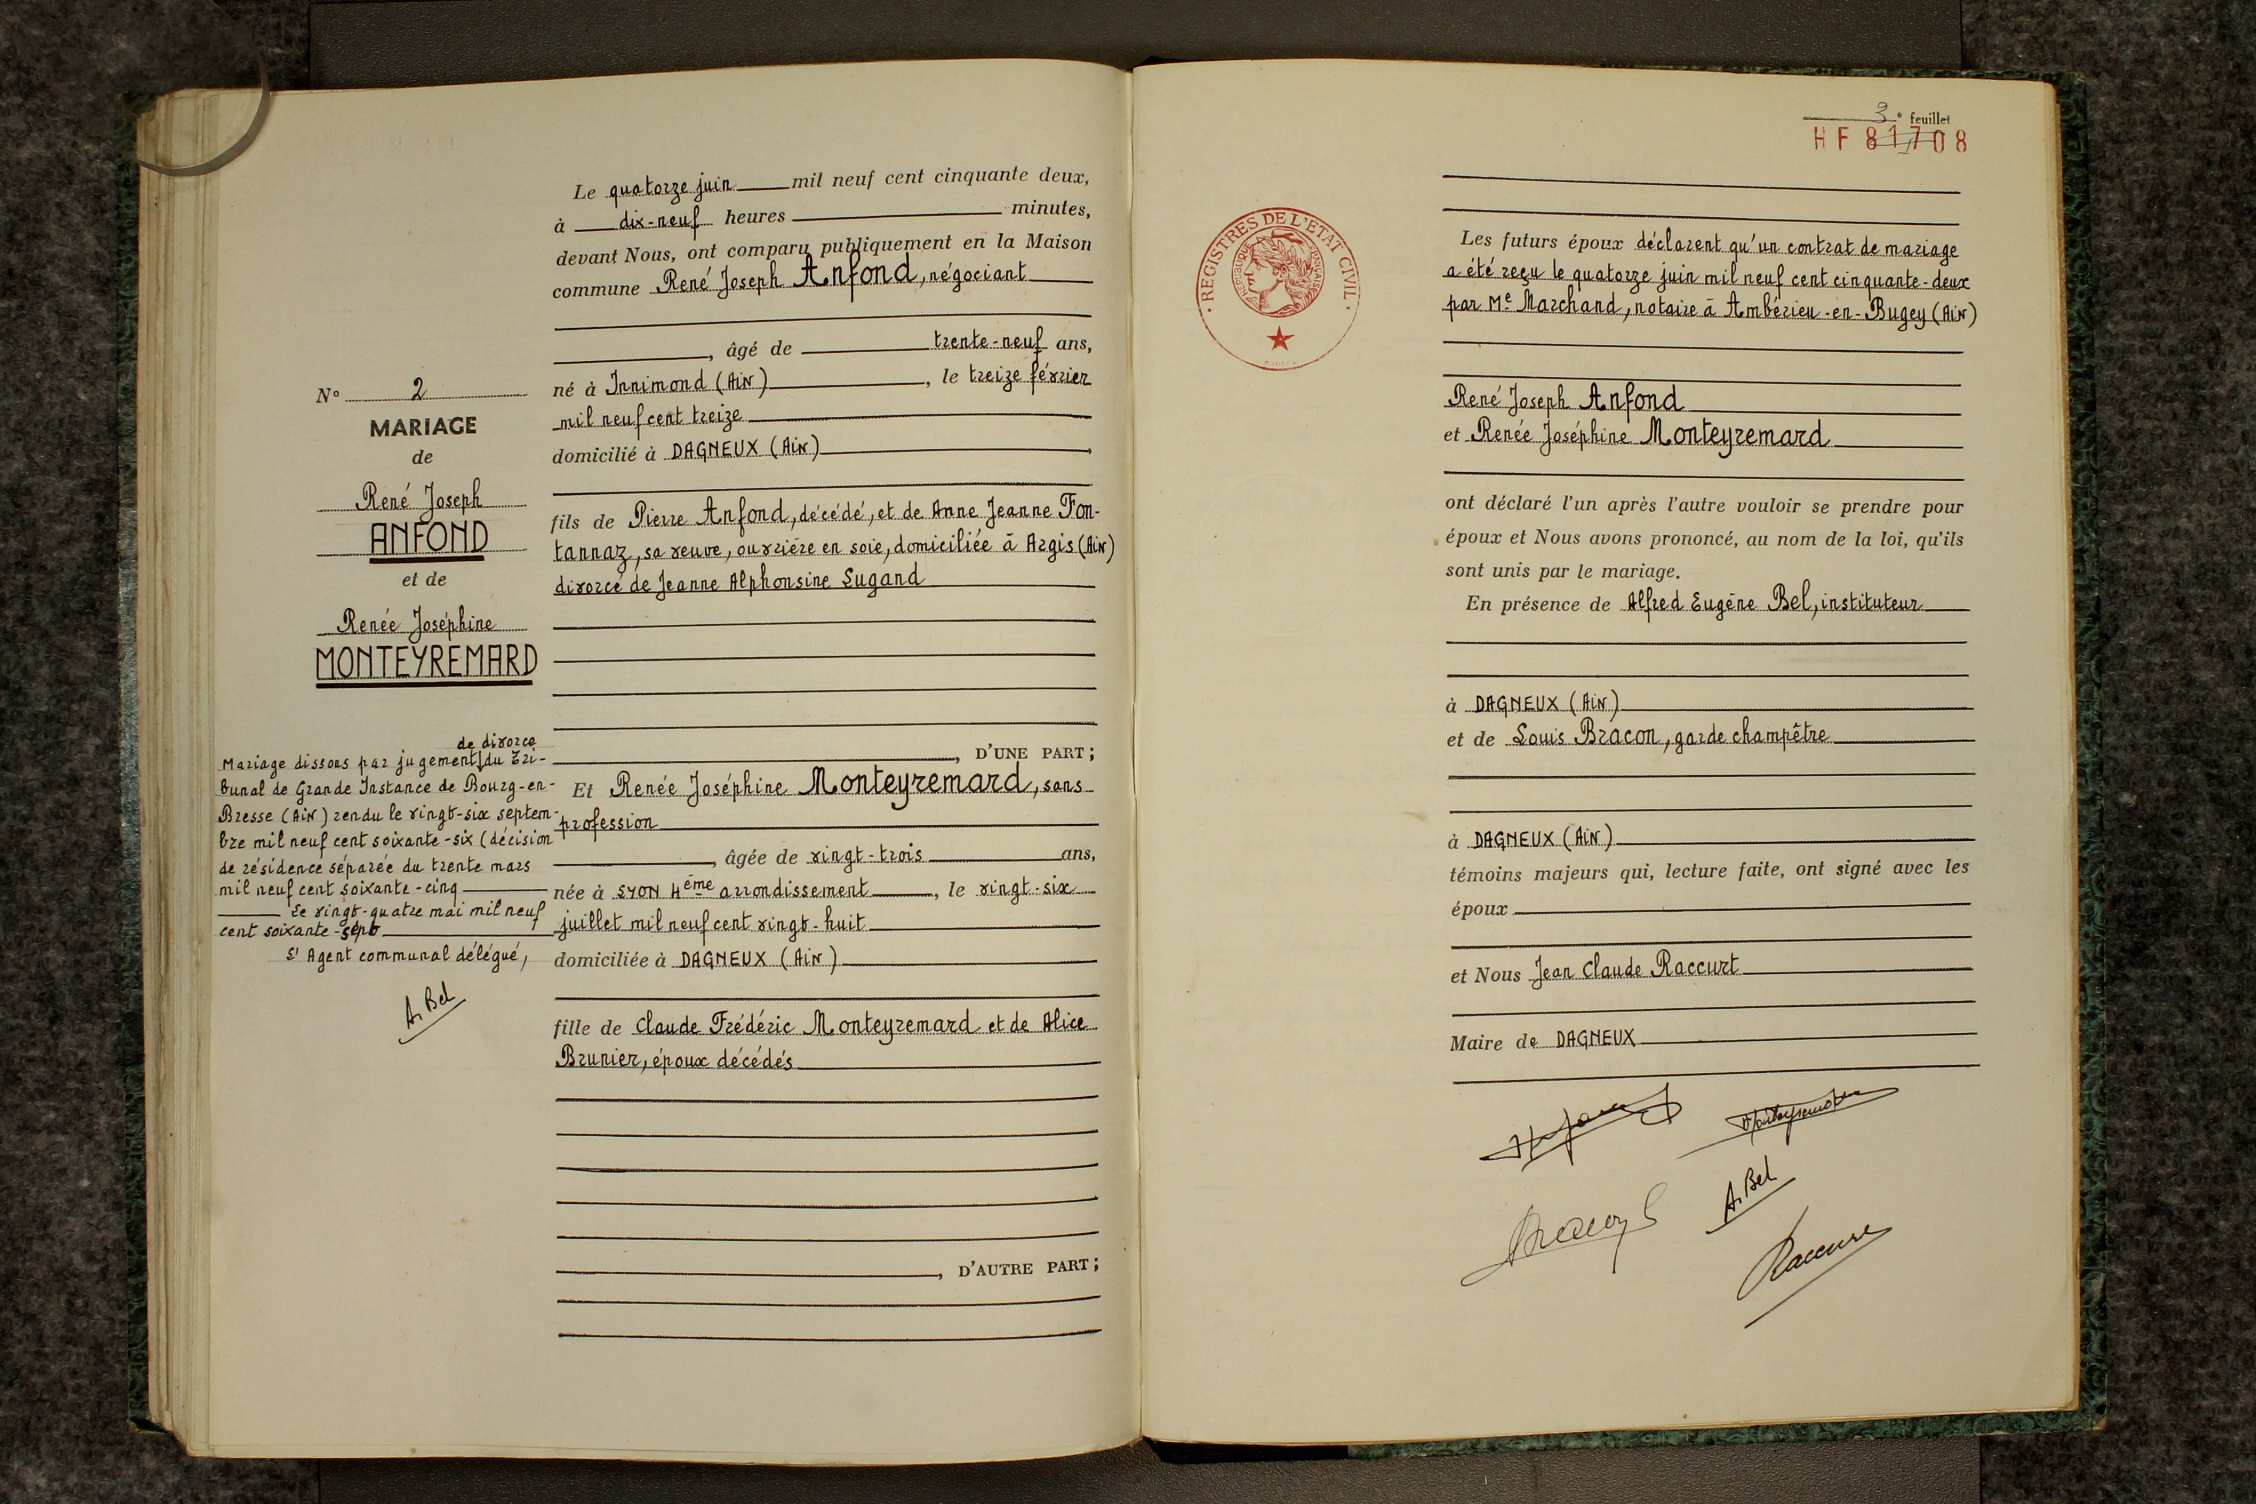 Le quatorze juin mil neuf cent cinquante deux,
à dix-neuf heures minutes,
devant Nous, ont comparu publiquement en la Maison
commune René Joseph Anfond, négociant
, âgé de trente-neuf ans,
né à Innimond (Ain), le treize février
mil neuf cent treize
domicilié à DAGNEUX (Ain)
fils de Pierre Anfond, décédé, et de Anne Jeanne Fon-
tannaz, sa veuve, ouvrière en soie, domiciliée à Argis (Ain)
divorcé de Jeanne Alphonsine Lugand
, D'UNE PART ;
Et Renée Joséphine Monteyremard, sans
profession
, âgée de vingt-trois ans,
née à LYON 4ème arrondissement, le vingt-six
juillet mil neuf cent vingt-huit
domiciliée à DAGNEUX (Ain)
fille de Claude Frédéric Monteyremard et de Alice
Brunier, époux décédés
, D'AUTRE PART ;
N° 2
MARIAGE
de
René Joseph
ANFOND
et de
Renée Joséphine
MONTEYREMARD
de divorce
Mariage dissous par jugement du Tri-
bunal de Grande Instance de Bourg-en-
Bresse (Ain) rendu le vingt-six septem-
bre mil neuf cent soixante-six (décision
de résidence séparée du trente mars
mil neuf cent soixante-cinq
Le vingt-quatre mai mil neuf
cent soixante-sept
L'Agent communal délégué,
A. Bel
3e feuillet
HF 81708
REGISTRES DE L'ETAT CIVIL
REPUBLIQUE FRANÇAISE
Les futurs époux déclarent qu'un contrat de mariage
a été reçu le quatorze juin mil neuf cent cinquante-deux
par Me Marchand, notaire à Ambérieu-en-Bugey (Ain)
René Joseph Anfond
et Renée Joséphine Monteyremard
ont déclaré l'un après l'autre vouloir se prendre pour
époux et Nous avons prononcé, au nom de la loi, qu'ils
sont unis par le mariage.
En présence de Alfred Eugène Bel, instituteur
à DAGNEUX (Ain)
et de Louis Bracon, garde champêtre
à DAGNEUX (Ain)
témoins majeurs qui, lecture faite, ont signé avec les
époux
et Nous Jean Claude Raccurt
Maire de DAGNEUX
Monteyremard
A. Bel
Raccurt